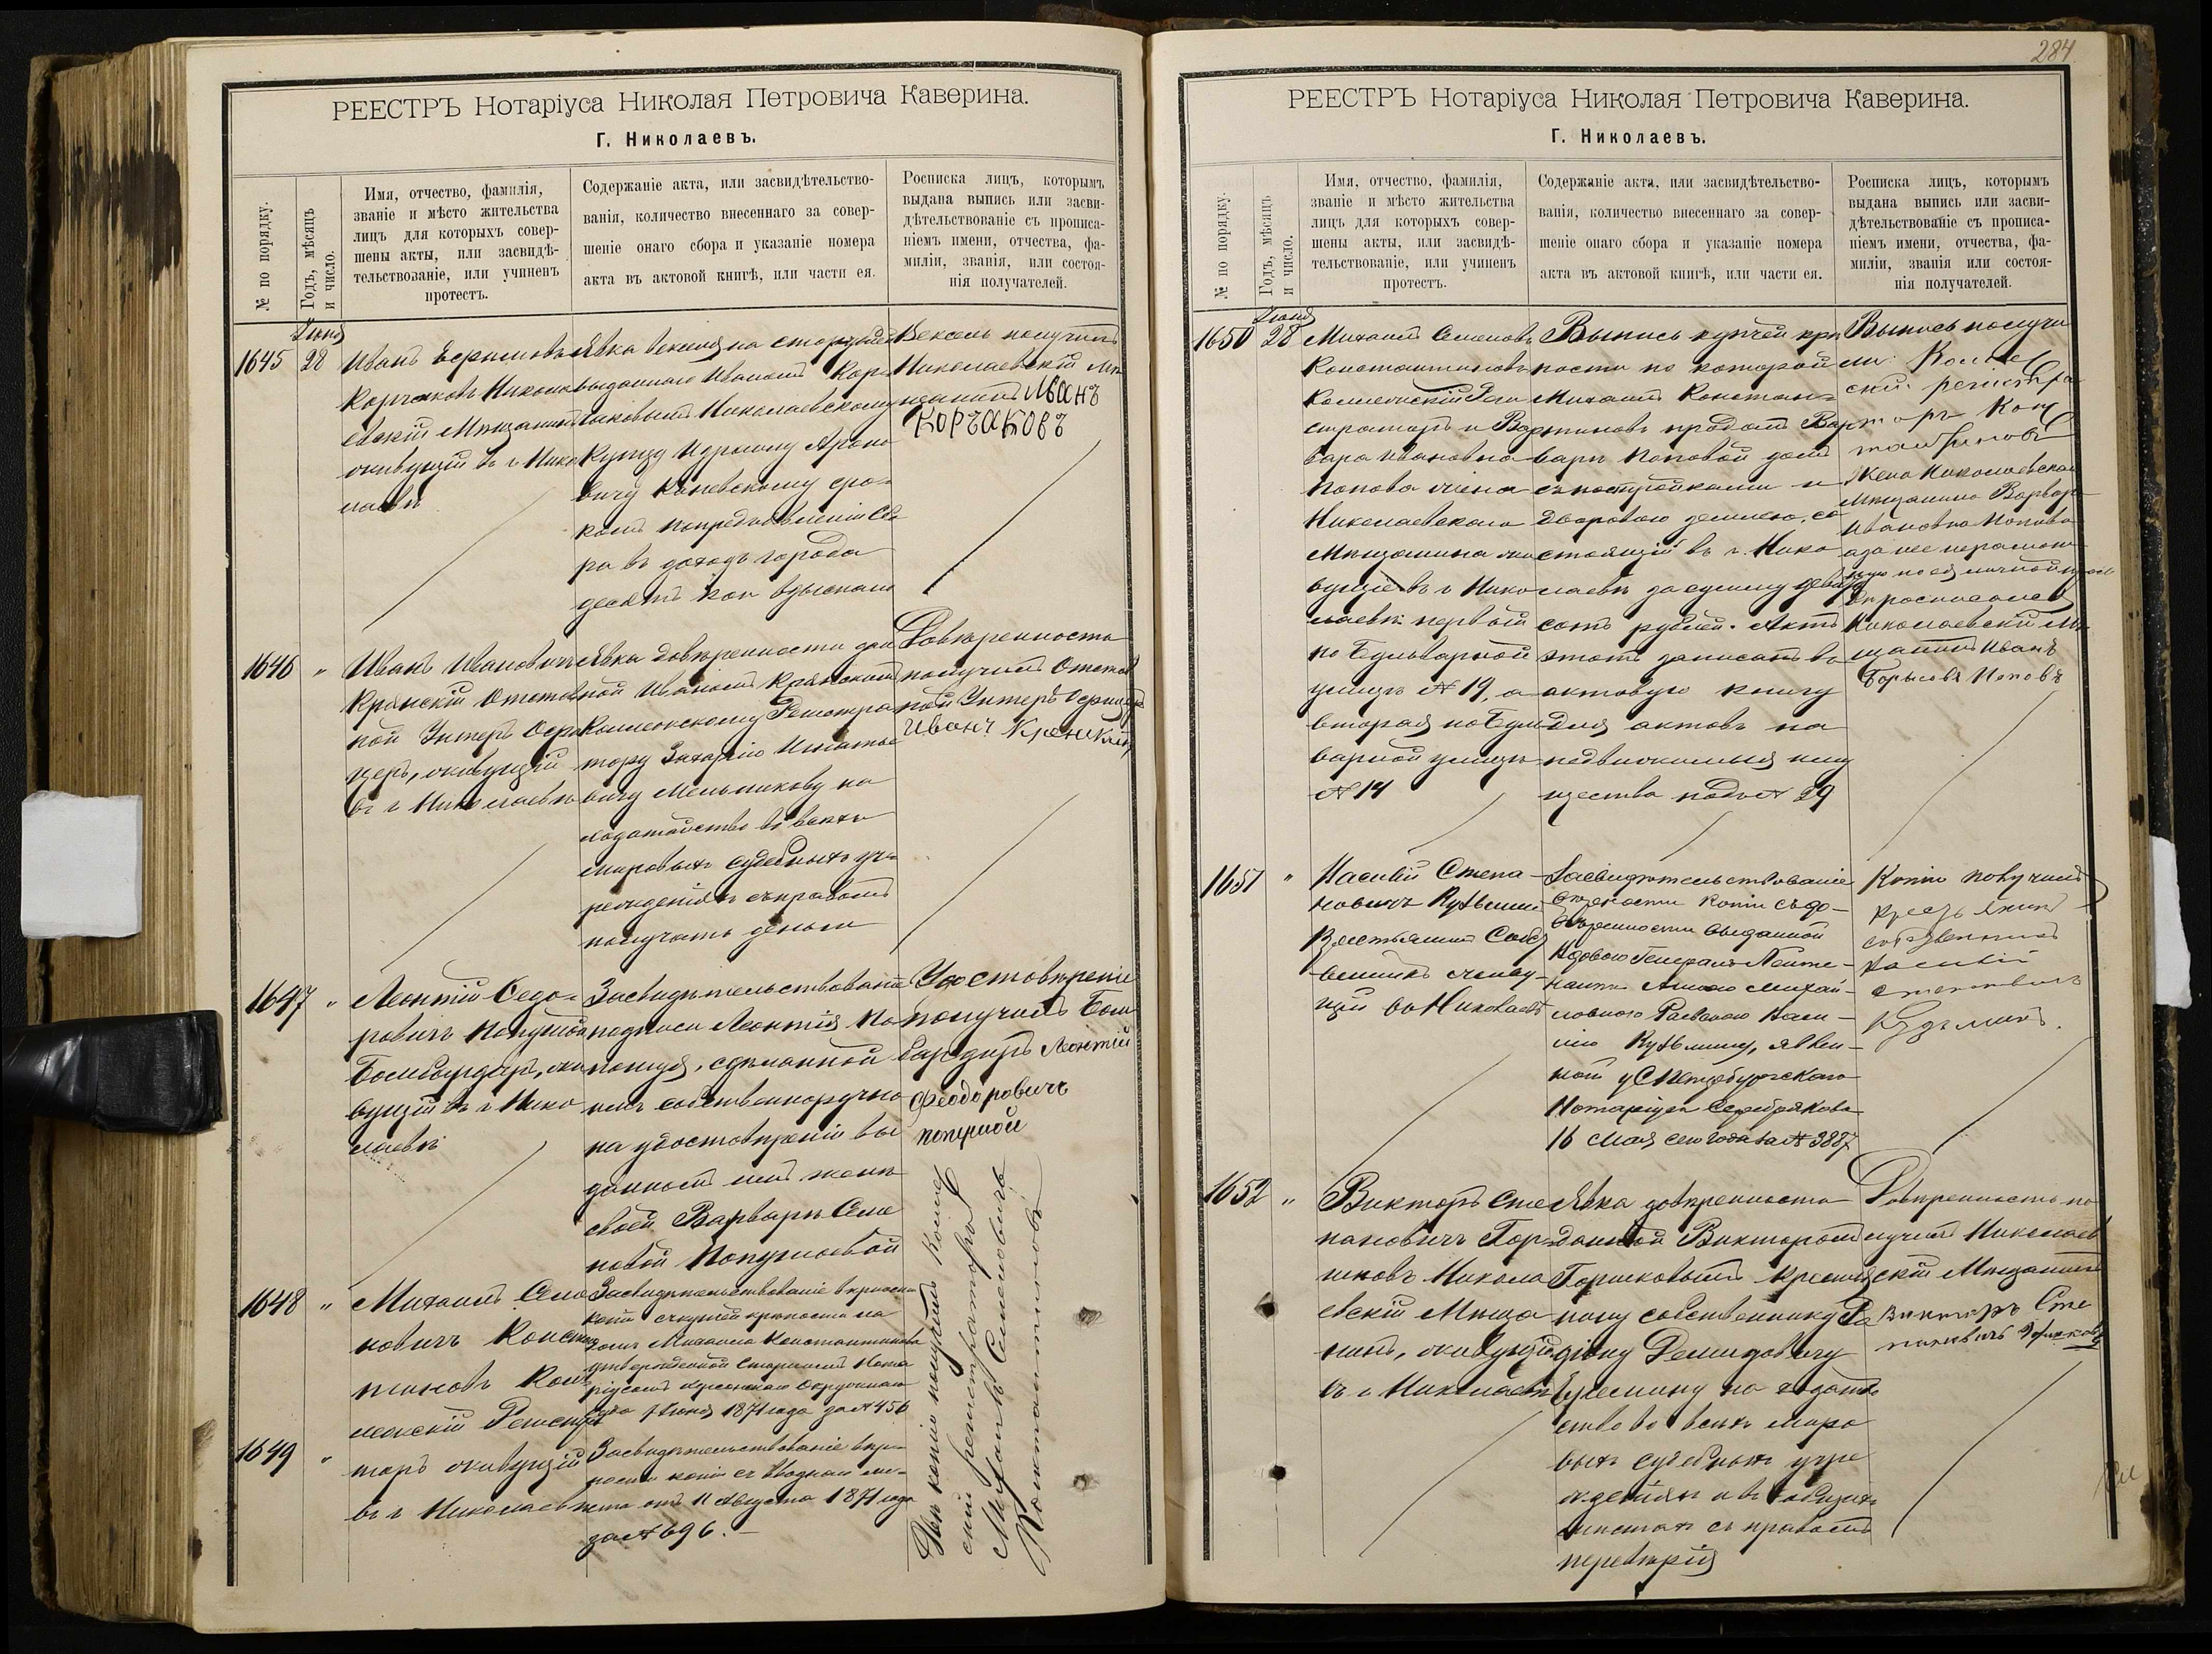 РЕЕСТРЪ Нотаріуса Николая Петровича Каверина.
Г. Николаевъ.
№ по порядку.
Годъ, мѣсяцъ
и число.
Имя, отчество, фамилія,
званіе и мѣсто жительства
лицъ для которыхъ совер-
шены акты, или засвидѣ-
тельствованіе, или учиненъ
протестъ.
Содержаніе акта, или засвидѣтельство-
ванія, количество внесеннаго за совер-
шеніе онаго сбора и указаніе номера
акта въ актовой книгѣ, или части ея.
Росписка лицъ, которымъ
выдана выпись или засви-
дѣтельствованіе съ прописа-
ніемъ имени, отчества, фа-
миліи, званія, или состоя-
нія получателей.
Іюня
1645
28
Иванъ
Корчаковъ Никола
евскій Мѣщанинъ
живущій въ г Нико
лаевѣ
Явка векселя на сто рублей
выданнаго Иваномъ Кор
чаковымъ Николаевскому
Купцу Ароно
вичу Каневскому сро-
комъ по предъявленіи Сбо
ра въ доходъ города
десять коп взыскано
Вексель получилъ
Николаевскій Мѣ
щанинъ Иванъ
Корчаковъ
1646
"
Иванъ Ивановичъ
Крянскій Отстав
ной Унтеръ Офи
церъ, живущій
въ г Николаевѣ
Явка довѣренности дан
ной Иваномъ Крянскимъ
Коллежскому Регистра
тору Захарію Игнатье
вичу Мельникову на
ходатайство во всѣхъ
мировыхъ судебныхъ уч-
режденіяхъ съ правомъ
получать деньги
Довѣренность
получилъ Отстав
ной Унтеръ Офицеръ
Иванъ Кренскій
1647
"
Леонтій Федо-
ровичъ Попушой
Бомбардиръ, жи
вущій въ г Нико
лаевѣ
Засвидѣтельствованіе
подписи Леонтія По
пушоя, сдѣланной
имъ собственноручно
на удостовѣреніи вы
данномъ имъ женѣ
своей Варварѣ Семе
новой Попушоевой
Удостовѣреніе
получилъ Бом
бардиръ Леонтій
Феодоровичъ
попушой
1648
"
Михаилъ Семе
новичъ Констан
тиновъ Кол
лежскій Регистра
Засвидѣтельствованіе вѣрности
копіи съ купчей крѣпости на
домъ Михаила Константинова
утвержденной Старшимъ Нота
ріусомъ Херсонскаго Окружнаго
суда Іюня 1871 года за № 456
1649
"
торъ живущій
въ г Николаевѣ
Засвидѣтельствованіе вѣр-
ности копіи съ вводнаго ли-
ста отъ 11 Августа 1871 года
за № 696.
Двѣ копіи получилъ Коллеж
скій регистраторъ
Михаилъ Семеновичъ
Константиновъ
284
РЕЕСТРЪ Нотаріуса Николая Петровича Каверина.
Г. Николаевъ.
№ по порядку.
Годъ, мѣсяцъ
и число.
Имя, отчество, фамилія,
званіе и мѣсто жительства
лицъ для которыхъ совер-
шены акты, или засвидѣ-
тельствованіе, или учиненъ
протестъ.
Содержаніе акта, или засвидѣтельство-
ванія, количество внесеннаго за совер-
шеніе онаго сбора и указаніе номера
акта въ актовой книгѣ, или части ея.
Росписка лицъ, которымъ
выдана выпись или засви-
дѣтельствованіе съ прописа-
ніемъ имени, отчества, фа-
миліи, званія или состоя-
нія получателей.
Іюня
1650
28
Михаилъ Семеновъ
Константиновъ
Коллежскій Реги
страторъ и Вар
вара Ивановна
Попова жена
Николаевскаго
Мѣщанина жи
вущіе въ г Нико
лаевѣ первый
по Бульварной
улицѣ № 19, а
вторая по Буль
варной улицѣ
№ 14
Выпись купчей крѣ
пости по которой
Михаилъ Констан-
тиновъ продалъ Вар
варѣ Поповой домъ
съ постройками и
дворовою землею, со
стоящій въ г. Нико
лаевѣ за сумму девять
сотъ рублей. Актъ
этотъ записанъ въ
актовую книгу
для актовъ на
недвижимыя иму
щества подъ № 29
Выпись получи
ли: Коллеж
скій регистра
торъ Конс
тантиновъ
Жена Николаевскаго
Мѣщанина Варвара
Ивановна Попова
а за нее неграмот
ную по ея личной прось
бѣ росписался
Николаевскій Мѣ
щанинъ Иванъ
Борисовъ Поповъ
1651
"
Василій Степа-
новичъ Кузьминъ
Крестьянинъ Собс
венникъ живу-
щій въ Николаевѣ
Засвидѣтельствованіе
вѣрности копіи съ до-
вѣренности выданной
Вдовою Генералъ Лейте-
нанта Анною Михай-
ловною Раевскою Васи-
лію Кузьмину, явлен-
ной у СПетербургскаго
Нотаріуса Серебрякова
16 Мая сего года за № 3887
Копію получилъ
крестьянинъ
собственникъ
Василій
Степановичъ
Кузьминъ.
1652
"
Викторъ Сте
пановичъ Гор-
шковъ Никола
евскій Мѣща
нинъ, живущій
въ г Николаевѣ
Явка довѣренности
данной Викторомъ
Горшковымъ крестья
нину собственнику Ро
діону Демидовичу
Еремину на ходатай
ство во всѣхъ миро
выхъ судебныхъ учре
жденіяхъ и въ
мѣстахъ съ правомъ
передовѣрія
Довѣренность по
лучилъ Николаев
скій Мѣщанинъ
Викторъ Сте
пановичъ Горшковъ